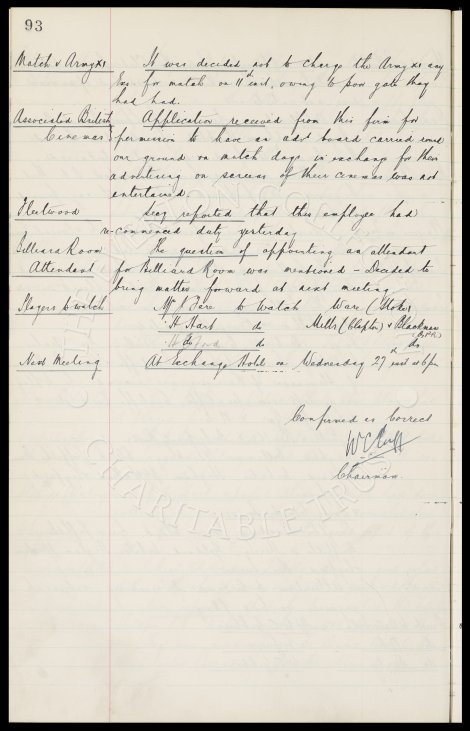 93
Match v Army XI It was decided not to charge the Army XI any
Exs for match on 11th inst, owing to poor gate they
had had.
Associated British Application received from this firm for
Cinemas permission to have an advt board carried round
our ground on match days in exchange for their
advertising on screens of their cinemas was not
entertained.
Fleetwood Secy reported that this employee had
re-commenced duty yesterday
Billiard Room The question of appointing an attendant
Attendant for Billiard Room was mentioned - Decided to
bring matter forward at next meeting
Players to watch Mr to Watch Ware (Stoke)
" H Hart do Mills (Clapton) & Blackman
do do
Next Meeting At Exchange Hotel on Wednesday 27th inst at 6 pm
Confirmed as Correct
Chairman.
CHARITABLE TRUST